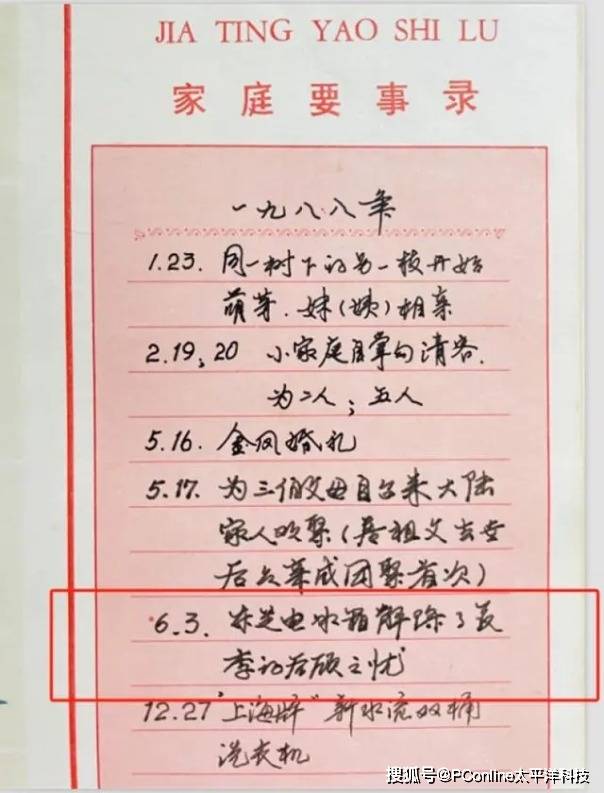 JIA TING YAO SHI LU
家庭要事录
一九八八年
1.23. 同一树下的另一枝开始
萌芽.妹(姨)相亲
2.19,20 小家庭自掌勺请客.
为二人;五人
5.16. 金凤婚礼
5.17. 为三伯父母自台来大陆
家人欢聚(祖父去世
后成团聚首次)
6.3. 东芝电冰箱解除了夏
季的后顾之忧
12.27 "上海牌"新水流双桶
洗衣机
搜狐号@PConline太平洋科技